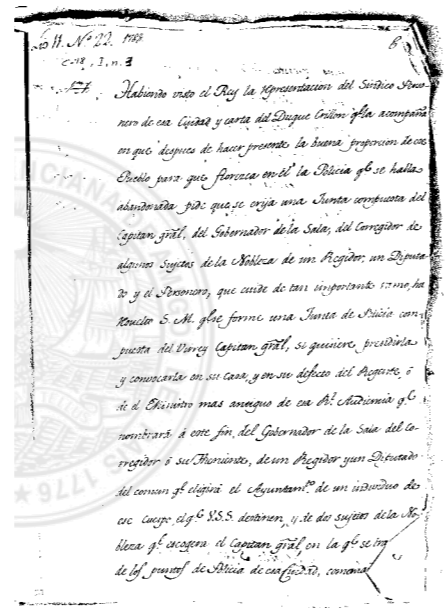 Lo 11. Nº 22. 1788
C-18, I, n. 3
Habiendo visto el Rey la representacion del Sindico Perso-
nero de esa Ciudad y carta del Duque Crillon qe. la acompaña
en que despues de hacer presente la buena proporcion de ese
Pueblo para que florezca en el la Policia qe. se halla
abandonada pide que se erija una Junta compuesta del
Capitan gral, del Gobernador de la Sala, del Corregidor de
algunos Sujetos de la Nobleza de un Regidor, un Diputa-
do y el Personero, que cuide de tan importante ramo, ha
resuelto S. M. qe. se forme una Junta de Policia com-
puesta del Virrey Capitan gral, si quisiere presidirla
y convocarla en su Casa, y en su defecto del Regente, ó
de el Ministro mas antiguo de esa Rl. Audiencia qe.
nombrará á este fin, del Gobernador de la Sala del Co-
rregidor ó su Theniente, de un Regidor y un Diputado
del comun qe. eligirá el Ayuntamto. de un individuo de
ese Cuerpo el qe. V.S.S. destinen, y de dos sujetos de la No-
bleza qe. escogera el Capitan gral, en la qe. se tra
de los puntos de Policia de esa Ciudad,